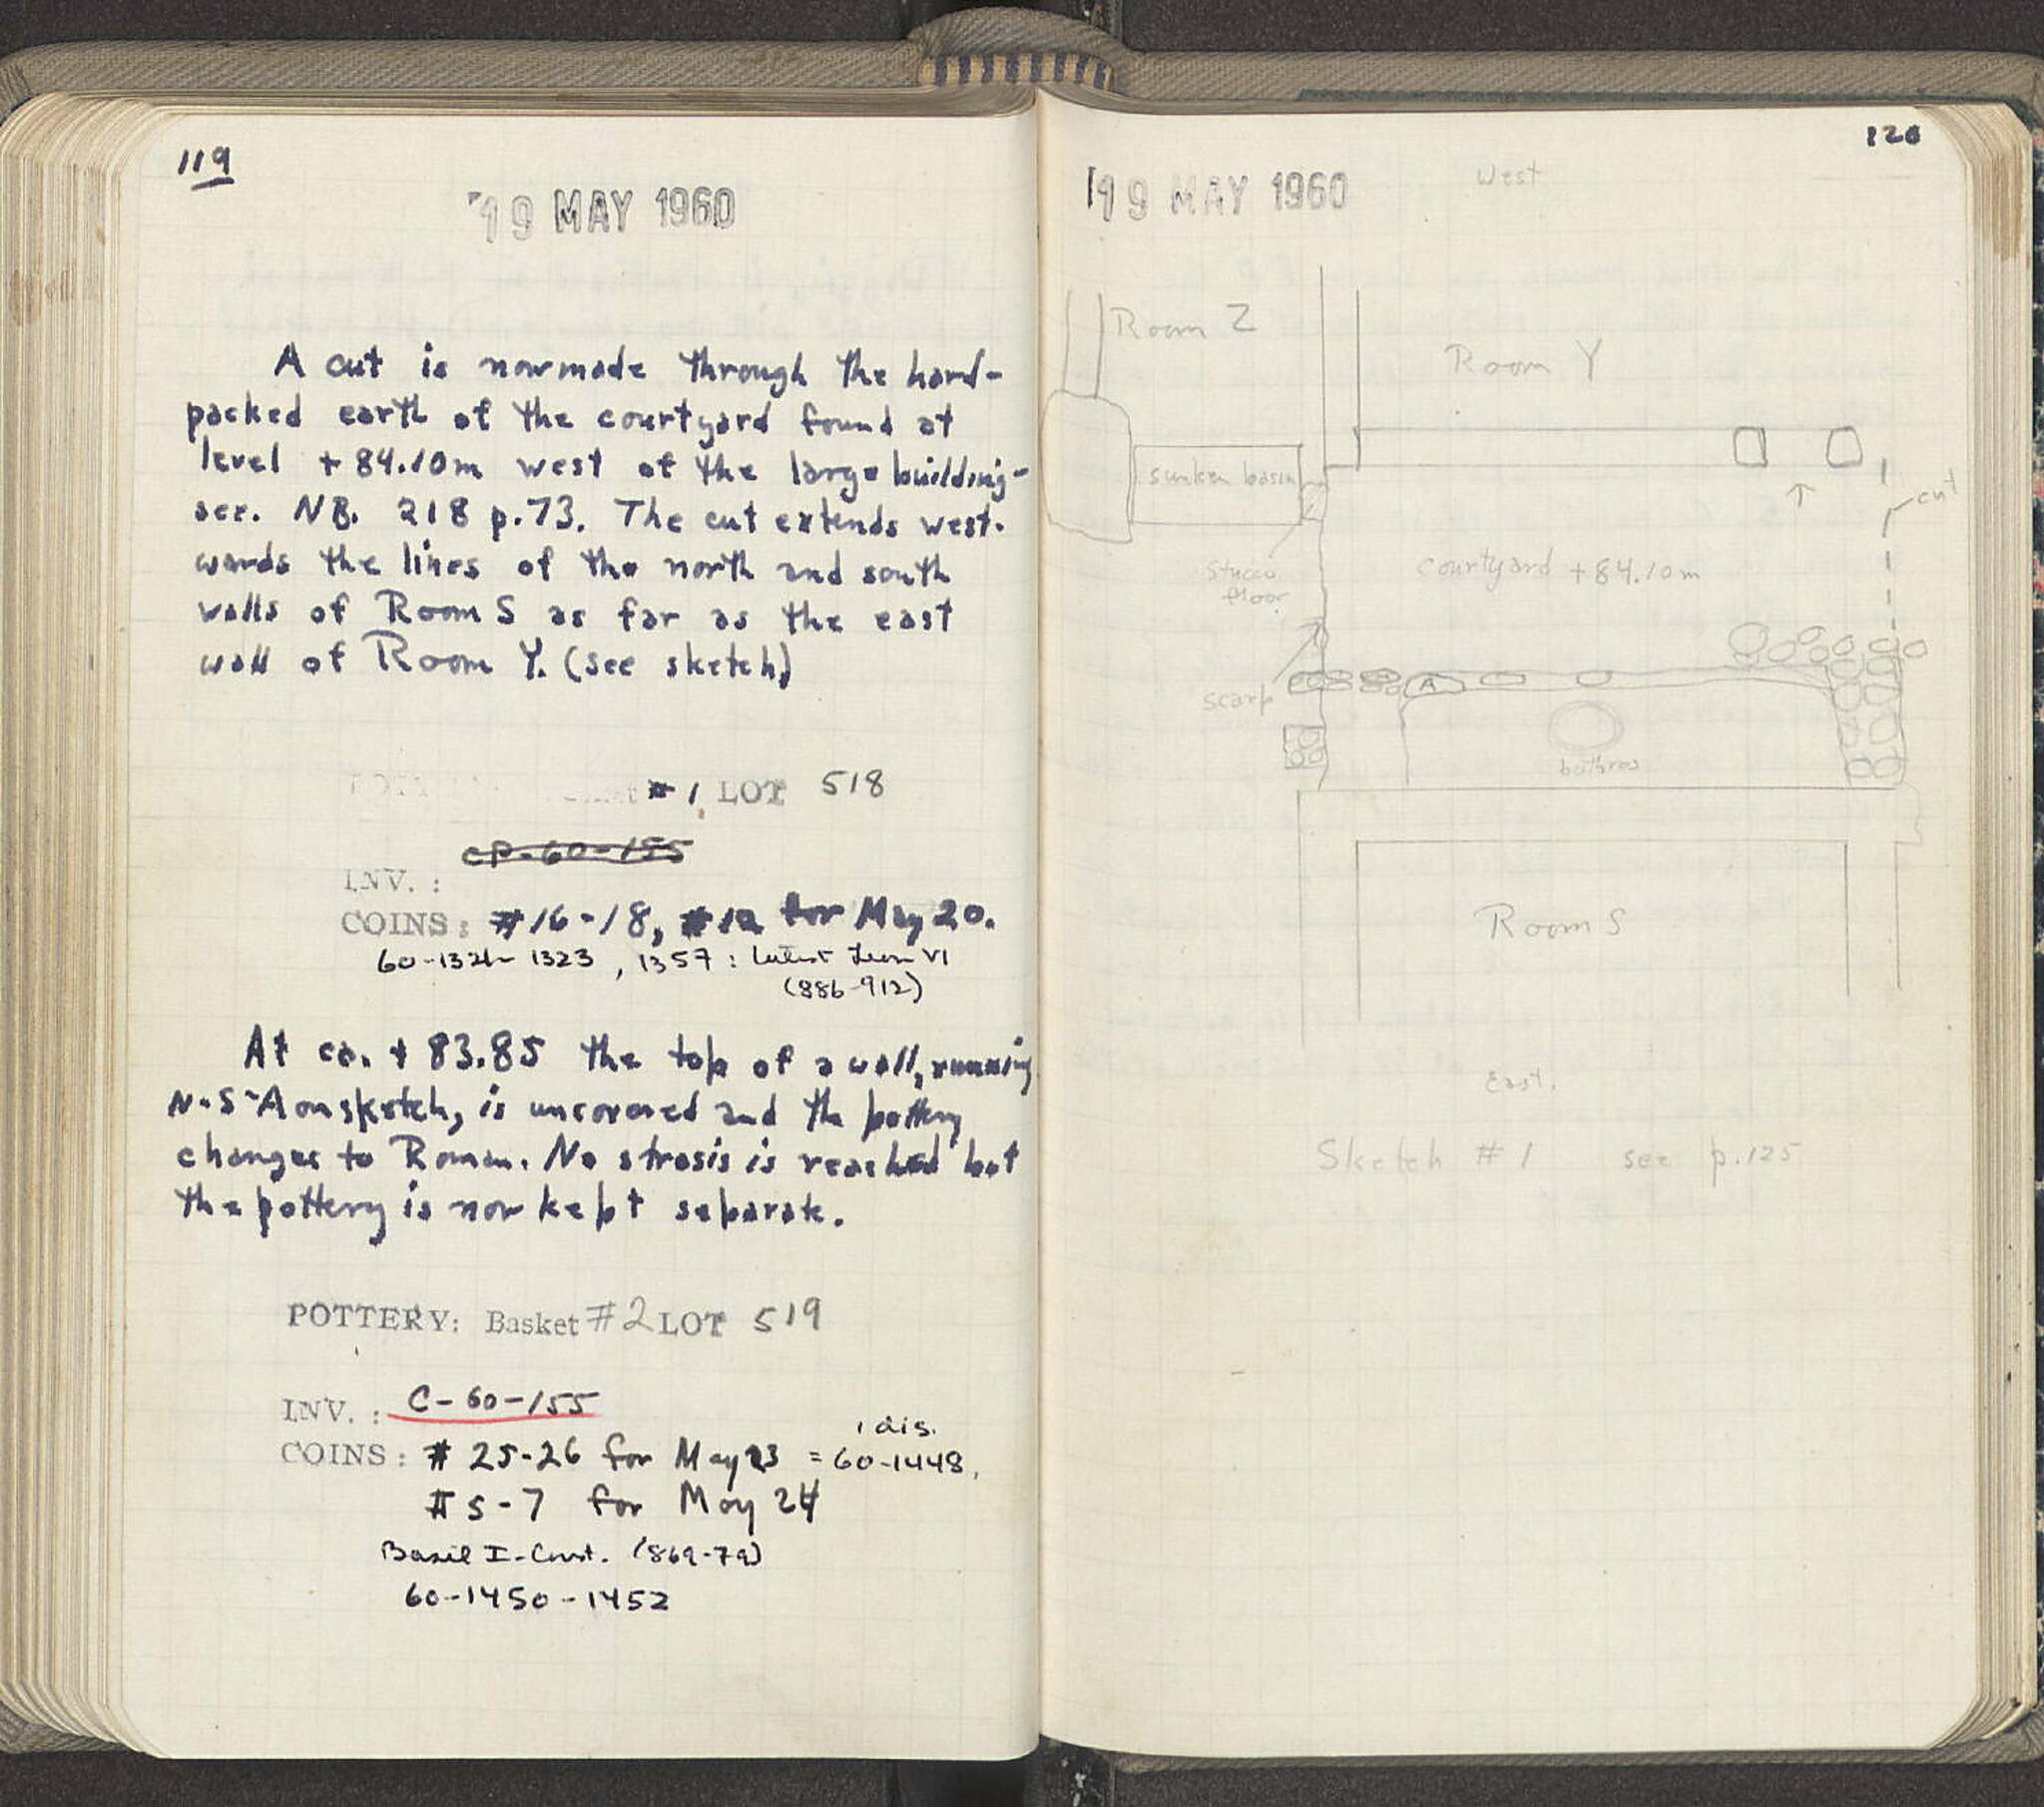 119
19 MAY 1960
A cut is now made through the hard-
packed earth of the courtyard found at
level +84.10m west of the large building-
see. NB. 218 p.73. The cut extends west-
wards the lines of the north and south
walls of Room S as far as the east
wall of Room Y. (see sketch)
#1 LOT 518
CP-60-155
INV. :
COINS: #16-18, for May 20.
60-1321- 1323, 1357: Latest Leon VI
(886-912)
At ca. + 83.85 the top of a wall, running
N-S-A on sketch, is uncovered and the pottery
changes to Roman. No strosis is reached but
the pottery is now kept separate.
POTTERY: Basket #2 LOT 519
INV. : C-60-155
1 dis.
COINS: # 25-26 for May 23 = 60-1448,
# 5-7 for May 24
Basil I-Const. (869-79)
60-1450-1452
120
19 MAY 1960
West
Room Z
Room Y
sunken basin
cut
stucco
floor
courtyard +84.10m
scarp
A
bothros
Room S
East.
Sketch #1 see p.125